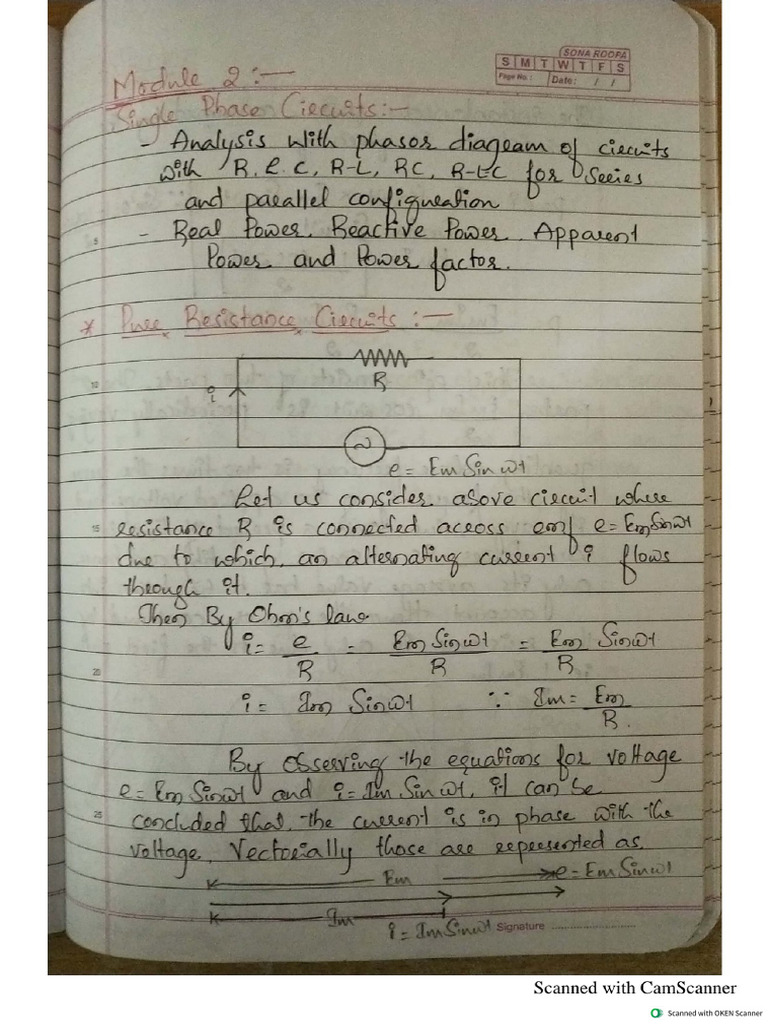 SONA ROOPA
S M T W T F S
Page No.: Date: / /
Module 2 :-
Single Phase Circuits :-
- Analysis with phasor diagram of circuits
with R, L, C, R-L, RC, R-LC for series
and parallel configuration
5
- Real Power, Reactive Power, Apparent
Power and Power factor.
* Pure Resistance Circuits :-
10
R
i
e = Em Sin ωt
Let us consider above circuit where
15
resistance R is connected across emf e = Em Sin ωt
due to which, an alternating current i flows
through it.
Then By Ohm's law
i = e/R = Em Sin ωt/R = Em/R Sin ωt
20
i = Im Sin ωt ∵ Im = Em/R.
By observing the equations for voltage
e = Em Sin ωt and i = Im Sin ωt, it can be
25
concluded that, the current is in phase with the
voltage. Vectorially those are represented as.
Em e = Em Sin ωt
Im
i = Im Sin ωt Signature
Scanned with CamScanner
Scanned with OKEN Scanner